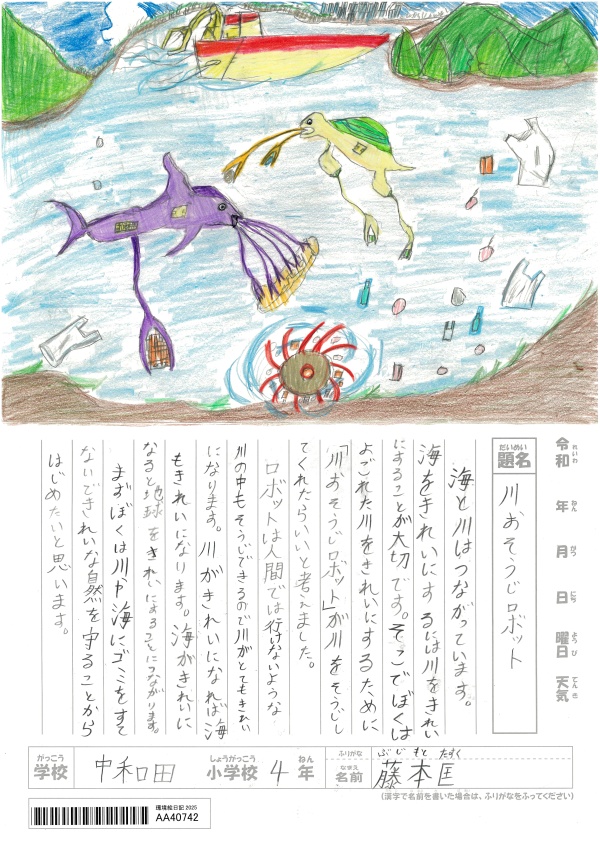 令和 れいわ 年 ねん 月 がつ 日 にち 曜日 ようび 天気 てんき
だいめい
題名
川おそうじロボット
海と川はつながっています。
海をきれいにするには川をきれい
にすることが大切です。そこでぼくは
よごれた川をきれいにするために
「川おそうじロボット」が川をそうじし
てくれたらいいと考えました。
ロボットは人間では行けないような
川の中もそうじできるので川がとてもきれい
になります。川がきれいになれば海
もきれいになります。海がきれいに
なると地球をきれいにすることにつながります。
まずぼくは川や海にゴミをすて
ないできれいな自然を守ることから
はじめたいと思います。
がっこう しょうがっこう ねん ふりがな ふじもと たすく
学校 中和田 小学校 4年 なまえ 名前 藤本匡
(漢字で名前を書いた場合は、ふりがなをふってください)
環境絵日記 2025
AA40742